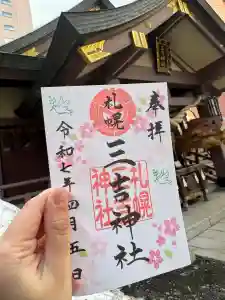 奉拝
札幌
三吉神社
札幌
神社
令和七年四月五日